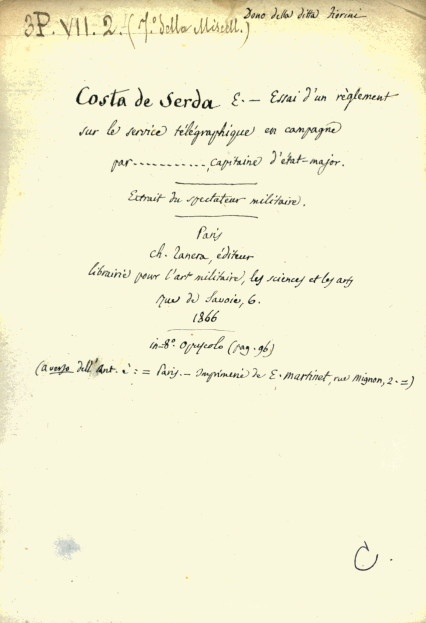 3P. VII. 2. (7.º della Miscell.)
Dono della ditta Fiorini
Costa de Serda E. — Essai d'un règlement
sur le service télégraphique en campagne
par .........., capitaine d'état-major.
Extrait du spectateur militaire.
Paris
ch. Tanera, éditeur
librairie pour l'art militaire, les sciences et les arts
rue de Savoie, 6.
1866
in-8º. Opuscolo (pag. 96)
(a verso dell'ant. è : = Paris. — Imprimerie de E. Martinet, rue Mignon, 2. =)
C.